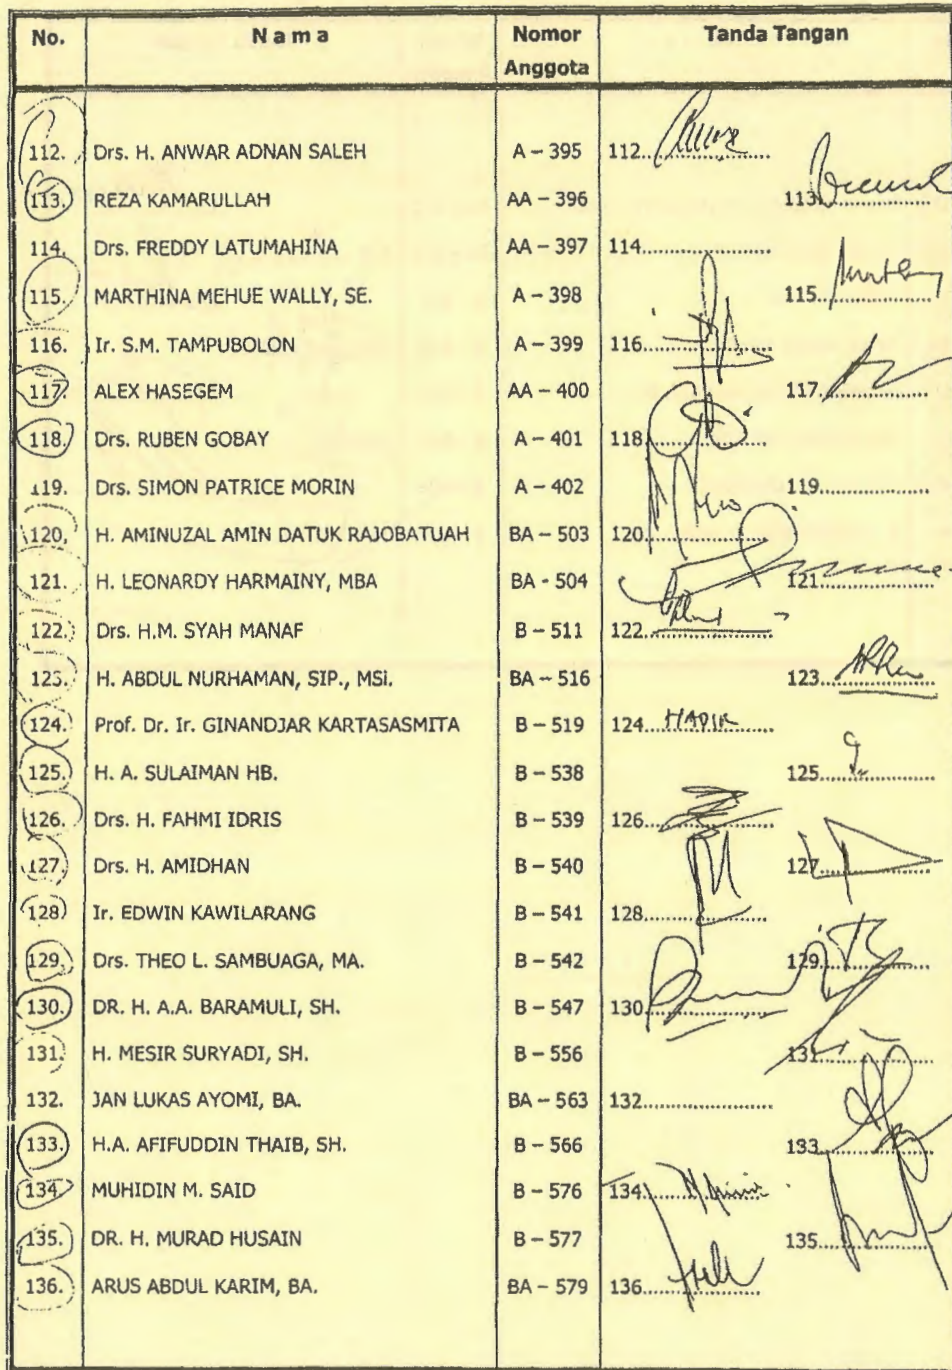 No. N a m a Nomor Anggota Tanda Tangan
112. Drs. H. ANWAR ADNAN SALEH A – 395 112..................
113. REZA KAMARULLAH AA – 396 113..................
114. Drs. FREDDY LATUMAHINA AA – 397 114..................
115. MARTHINA MEHUE WALLY, SE. A – 398 115..................
116. Ir. S.M. TAMPUBOLON A – 399 116..................
117. ALEX HASEGEM AA – 400 117..................
118. Drs. RUBEN GOBAY A – 401 118..................
119. Drs. SIMON PATRICE MORIN A – 402 119..................
120. H. AMINUZAL AMIN DATUK RAJOBATUAH BA – 503 120..................
121. H. LEONARDY HARMAINY, MBA BA - 504 121..................
122. Drs. H.M. SYAH MANAF B – 511 122..................
123. H. ABDUL NURHAMAN, SIP., MSi. BA – 516 123..................
124. Prof. Dr. Ir. GINANDJAR KARTASASMITA B – 519 124..... HADIR
125. H. A. SULAIMAN HB. B – 538 125..................
126. Drs. H. FAHMI IDRIS B – 539 126..................
127. Drs. H. AMIDHAN B – 540 127..................
128. Ir. EDWIN KAWILARANG B – 541 128..................
129. Drs. THEO L. SAMBUAGA, MA. B – 542 129..................
130. DR. H. A.A. BARAMULI, SH. B – 547 130..................
131. H. MESIR SURYADI, SH. B – 556 131..................
132. JAN LUKAS AYOMI, BA. BA – 563 132..................
133. H.A. AFIFUDDIN THAIB, SH. B – 566 133..................
134. MUHIDIN M. SAID B – 576 134..................
135. DR. H. MURAD HUSAIN B – 577 135..................
136. ARUS ABDUL KARIM, BA. BA – 579 136..................